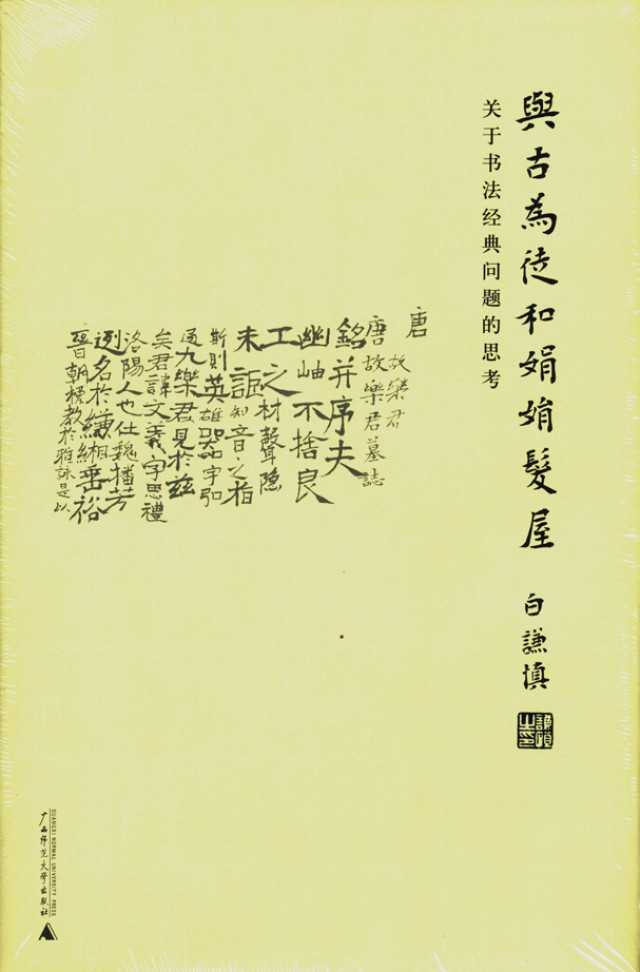 與古為徒和娟娟髮屋
白謙慎
关于书法经典问题的思考
唐
故樂君
唐故樂君墓誌
銘并序夫
幽岫不捨良
工之材聲隐
未謳知音之指
斯則英雄器字弘
九樂君見於茲
矣君諱文義字思禮
洛陽人也仕魏播芳
名於緗垂裕
晉朝標教於雅詠是以
GUANGXI NORMAL UNIVERSITY PRESS
广西师范大学出版社